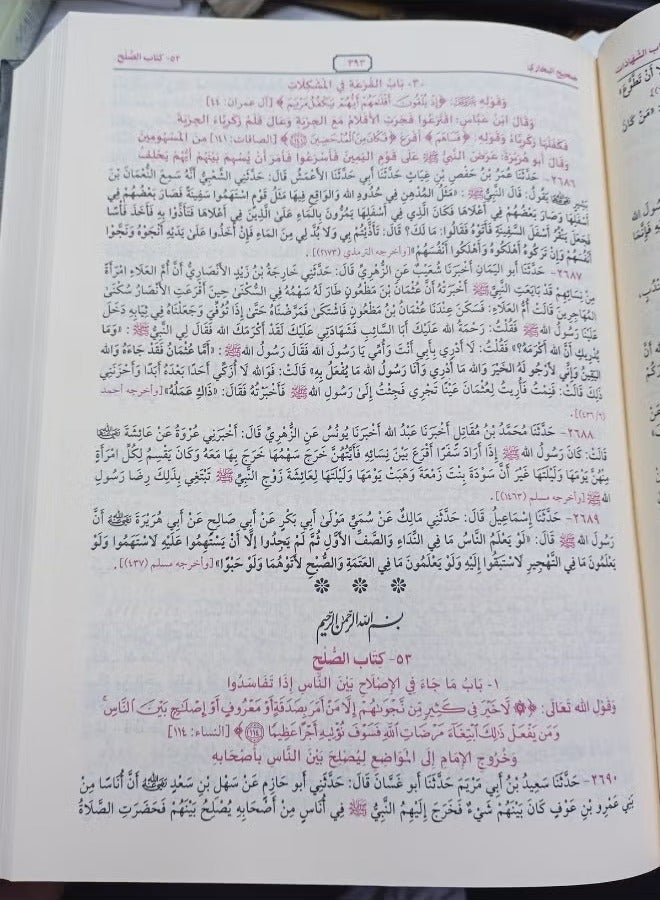 صحيح البخاري
٣٩٣
٥٣- كتاب الصُّلْح
٣٠- بَابُ القُرْعَةِ فِي المُشْكِلَاتِ
وَقَوْلِهِ ﷻ: ﴿إِذْ يُلْقُونَ أَقْلَامَهُمْ أَيُّهُمْ يَكْفُلُ مَرْيَمَ﴾ [آل عمران: ٤٤]
وَقَالَ ابْنُ عَبَّاسٍ: اقْتَرَعُوا فَجَرَتِ الأَقْلَامُ مَعَ الجِرْيَةِ وَعَالَ قَلَمُ زَكَرِيَّاءَ الجِرْيَةَ
فَكَفَلَهَا زَكَرِيَّاءُ وَقَوْلِهِ: ﴿فَسَاهَمَ﴾ أَقْرَعَ ﴿فَكَانَ مِنَ الْمُدْحَضِينَ ۝١٤١﴾ [الصافات: ١٤١] مِنَ المَسْهُومِينَ
وَقَالَ أَبو هُرَيْرَةَ: عَرَضَ النَّبِيُّ ﷺ عَلَى قَوْمٍ اليَمِينَ فَأَسْرَعُوا فَأَمَرَ أَنْ يُسْهِمَ بَيْنَهُمْ أَيُّهُمْ يَحْلِفُ
٢٦٨٦- حَدَّثَنَا عُمَرُ بْنُ حَفْصِ بْنِ غِيَاثٍ حَدَّثَنَا أَبِي حَدَّثَنَا الأَعْمَشُ قَالَ: حَدَّثَنِي الشَّعْبِيُّ أَنَّهُ سَمِعَ النُّعْمَانَ بْنَ
بَشِيرٍ ﷺ يَقُولُ: قَالَ النَّبِيُّ ﷺ: «مَثَلُ المُدْهِنِ فِي حُدُودِ الله وَالوَاقِعِ فِيهَا مَثَلُ قَوْمٍ اسْتَهَمُوا سَفِينَةً فَصَارَ بَعْضُهُمْ فِي
أَسْفَلِهَا وَصَارَ بَعْضُهُمْ فِي أَعْلَاهَا فَكَانَ الَّذِي فِي أَسْفَلِهَا يَمُرُّونَ بِالمَاءِ عَلَى الَّذِينَ فِي أَعْلَاهَا فَتَأَذَّوْا بِهِ فَأَخَذَ فَأْسًا
فَجَعَلَ يَنْقُرُ أَسْفَلَ السَّفِينَةِ فَأَتَوْهُ فَقَالُوا: مَا لَكَ؟ قَالَ: تَأَذَّيْتُمْ بِي وَلَا بُدَّ لِي مِنَ المَاءِ فَإِنْ أَخَذُوا عَلَى يَدَيْهِ أَنْجَوْهُ وَنَجَّوْا
أَنْفُسَهُمْ وَإِنْ تَرَكُوهُ أَهْلَكُوهُ وَأَهْلَكُوا أَنْفُسَهُمْ» [وأخرجه الترمذي (٢١٧٣)].
٢٦٨٧- حَدَّثَنَا أَبو اليَمَانِ أَخْبَرَنَا شُعَيْبٌ عَنِ الزُّهْرِيِّ قَالَ: حَدَّثَنِي خَارِجَةُ بْنُ زَيْدٍ الأَنْصَارِيُّ أَنَّ أُمَّ العَلَاءِ امْرَأَةً
مِنْ نِسَائِهِمْ قَدْ بَايَعَتِ النَّبِيَّ ﷺ أَخْبَرَتْهُ أَنَّ عُثْمَانَ بْنَ مَظْعُونٍ طَارَ لَهُ سَهْمُهُ فِي السُّكْنَى حِينَ أَقْرَعَتِ الأَنْصَارُ سُكْنَى
المُهَاجِرِينَ قَالَتْ أُمُّ العَلَاءِ: فَسَكَنَ عِنْدَنَا عُثْمَانُ بْنُ مَظْعُونٍ فَاشْتَكَى فَمَرَّضْنَاهُ حَتَّى إِذَا تُوُفِّيَ وَجَعَلْنَاهُ فِي ثِيَابِهِ دَخَلَ
عَلَيْنَا رَسُولُ الله ﷺ فَقُلْتُ: رَحْمَةُ الله عَلَيْكَ أَبَا السَّائِبِ فَشَهَادَتِي عَلَيْكَ لَقَدْ أَكْرَمَكَ الله فَقَالَ لِي النَّبِيُّ ﷺ: «وَمَا
يُدْرِيكِ أَنَّ الله أَكْرَمَهُ؟» فَقُلْتُ: لَا أَدْرِي بِأَبِي أَنْتَ وَأُمِّي يَا رَسُولَ الله فَقَالَ رَسُولُ الله ﷺ: «أَمَّا عُثْمَانُ فَقَدْ جَاءَهُ وَالله
اليَقِينُ وَإِنِّي لَأَرْجُو لَهُ الخَيْرَ وَالله مَا أَدْرِي وَأَنَا رَسُولُ الله مَا يُفْعَلُ بِهِ» قَالَتْ: فَوَالله لَا أُزَكِّي أَحَدًا بَعْدَهُ أَبَدًا وَأَحْزَنَنِي
ذَلِكَ قَالَتْ: فَنِمْتُ فَأُرِيتُ لِعُثْمَانَ عَيْنًا تَجْرِي فَجِئْتُ إِلَى رَسُولِ الله ﷺ فَأَخْبَرْتُهُ فَقَالَ: «ذَاكِ عَمَلُهُ» [وأخرجه أحمد
(٤٣٦/٦)].
٢٦٨٨- حَدَّثَنَا مُحَمَّدُ بْنُ مُقَاتِلٍ أَخْبَرَنَا عَبْدُ الله أَخْبَرَنَا يُونُسُ عَنِ الزُّهْرِيِّ قَالَ: أَخْبَرَنِي عُرْوَةُ عَنْ عَائِشَةَ
قَالَتْ: كَانَ رَسُولُ الله ﷺ إِذَا أَرَادَ سَفَرًا أَقْرَعَ بَيْنَ نِسَائِهِ فَأَيَّتُهُنَّ خَرَجَ سَهْمُهَا خَرَجَ بِهَا مَعَهُ وَكَانَ يَقْسِمُ لِكُلِّ امْرَأَةٍ
مِنْهُنَّ يَوْمَهَا وَلَيْلَتَهَا غَيْرَ أَنَّ سَوْدَةَ بِنْتَ زَمْعَةَ وَهَبَتْ يَوْمَهَا وَلَيْلَتَهَا لِعَائِشَةَ زَوْجِ النَّبِيِّ ﷺ تَبْتَغِي بِذَلِكَ رِضَا رَسُولِ
الله ﷺ [وأخرجه مسلم (١٤٦٣)].
٢٦٨٩- حَدَّثَنَا إِسْمَاعِيلُ قَالَ: حَدَّثَنِي مَالِكٌ عَنْ سُمَيٍّ مَوْلَى أَبِي بَكْرٍ عَنْ أَبِي صَالِحٍ عَنْ أَبِي هُرَيْرَةَ أَنَّ
رَسُولَ الله ﷺ قَالَ: «لَوْ يَعْلَمُ النَّاسُ مَا فِي النِّدَاءِ وَالصَّفِّ الأَوَّلِ ثُمَّ لَمْ يَجِدُوا إِلَّا أَنْ يَسْتَهِمُوا عَلَيْهِ لَاسْتَهَمُوا وَلَوْ
يَعْلَمُونَ مَا فِي التَّهْجِيرِ لَاسْتَبَقُوا إِلَيْهِ وَلَوْ يَعْلَمُونَ مَا فِي العَتَمَةِ وَالصُّبْحِ لَأَتَوْهُمَا وَلَوْ حَبْوًا» [وأخرجه مسلم (٤٣٧)].
بسم الله الرحمن الرحيم
٥٣- كِتَابُ الصُّلْحِ
١- بَابُ مَا جَاءَ فِي الإِصْلَاحِ بَيْنَ النَّاسِ إِذَا تَفَاسَدُوا
وَقَوْلِ الله تَعَالَى: ﴿لَا خَيْرَ فِي كَثِيرٍ مِنْ نَجْوَاهُمْ إِلَّا مَنْ أَمَرَ بِصَدَقَةٍ أَوْ مَعْرُوفٍ أَوْ إِصْلَاحٍ بَيْنَ النَّاسِ
وَمَن يَفْعَلْ ذَلِكَ ابْتِغَاءَ مَرْضَاتِ اللَّهِ فَسَوْفَ نُؤْتِيهِ أَجْرًا عَظِيمًا ۝١١٤﴾ [النساء: ١١٤]
وَخُرُوجِ الإِمَامِ إِلَى المَوَاضِعِ لِيُصْلِحَ بَيْنَ النَّاسِ بِأَصْحَابِهِ
٢٦٩٠- حَدَّثَنَا سَعِيدُ بْنُ أَبِي مَرْيَمَ حَدَّثَنَا أَبو غَسَّانَ قَالَ: حَدَّثَنِي أَبو حَازِمٍ عَنْ سَهْلِ بْنِ سَعْدٍ أَنَّ أُنَاسًا مِنْ
بَنِي عَمْرِو بْنِ عَوْفٍ كَانَ بَيْنَهُمْ شَيْءٌ فَخَرَجَ إِلَيْهِمُ النَّبِيُّ ﷺ فِي أُنَاسٍ مِنْ أَصْحَابِهِ يُصْلِحُ بَيْنَهُمْ فَحَضَرَتِ الصَّلَاةُ